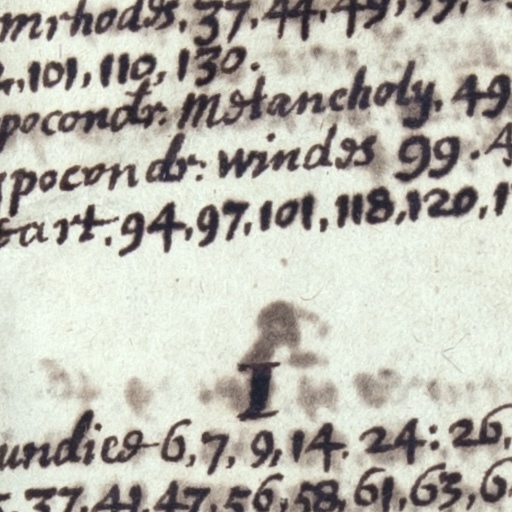 mrhodes. 37. 44. 49,
101, 110, 130.
pocondr: Melancholy. 49
pocondr: windes 99.
art. 94, 97, 101, 118, 120,
I
undies 6, 7, 9, 14. 24: 26,
37. 41. 47. 56. 58. 61. 63,